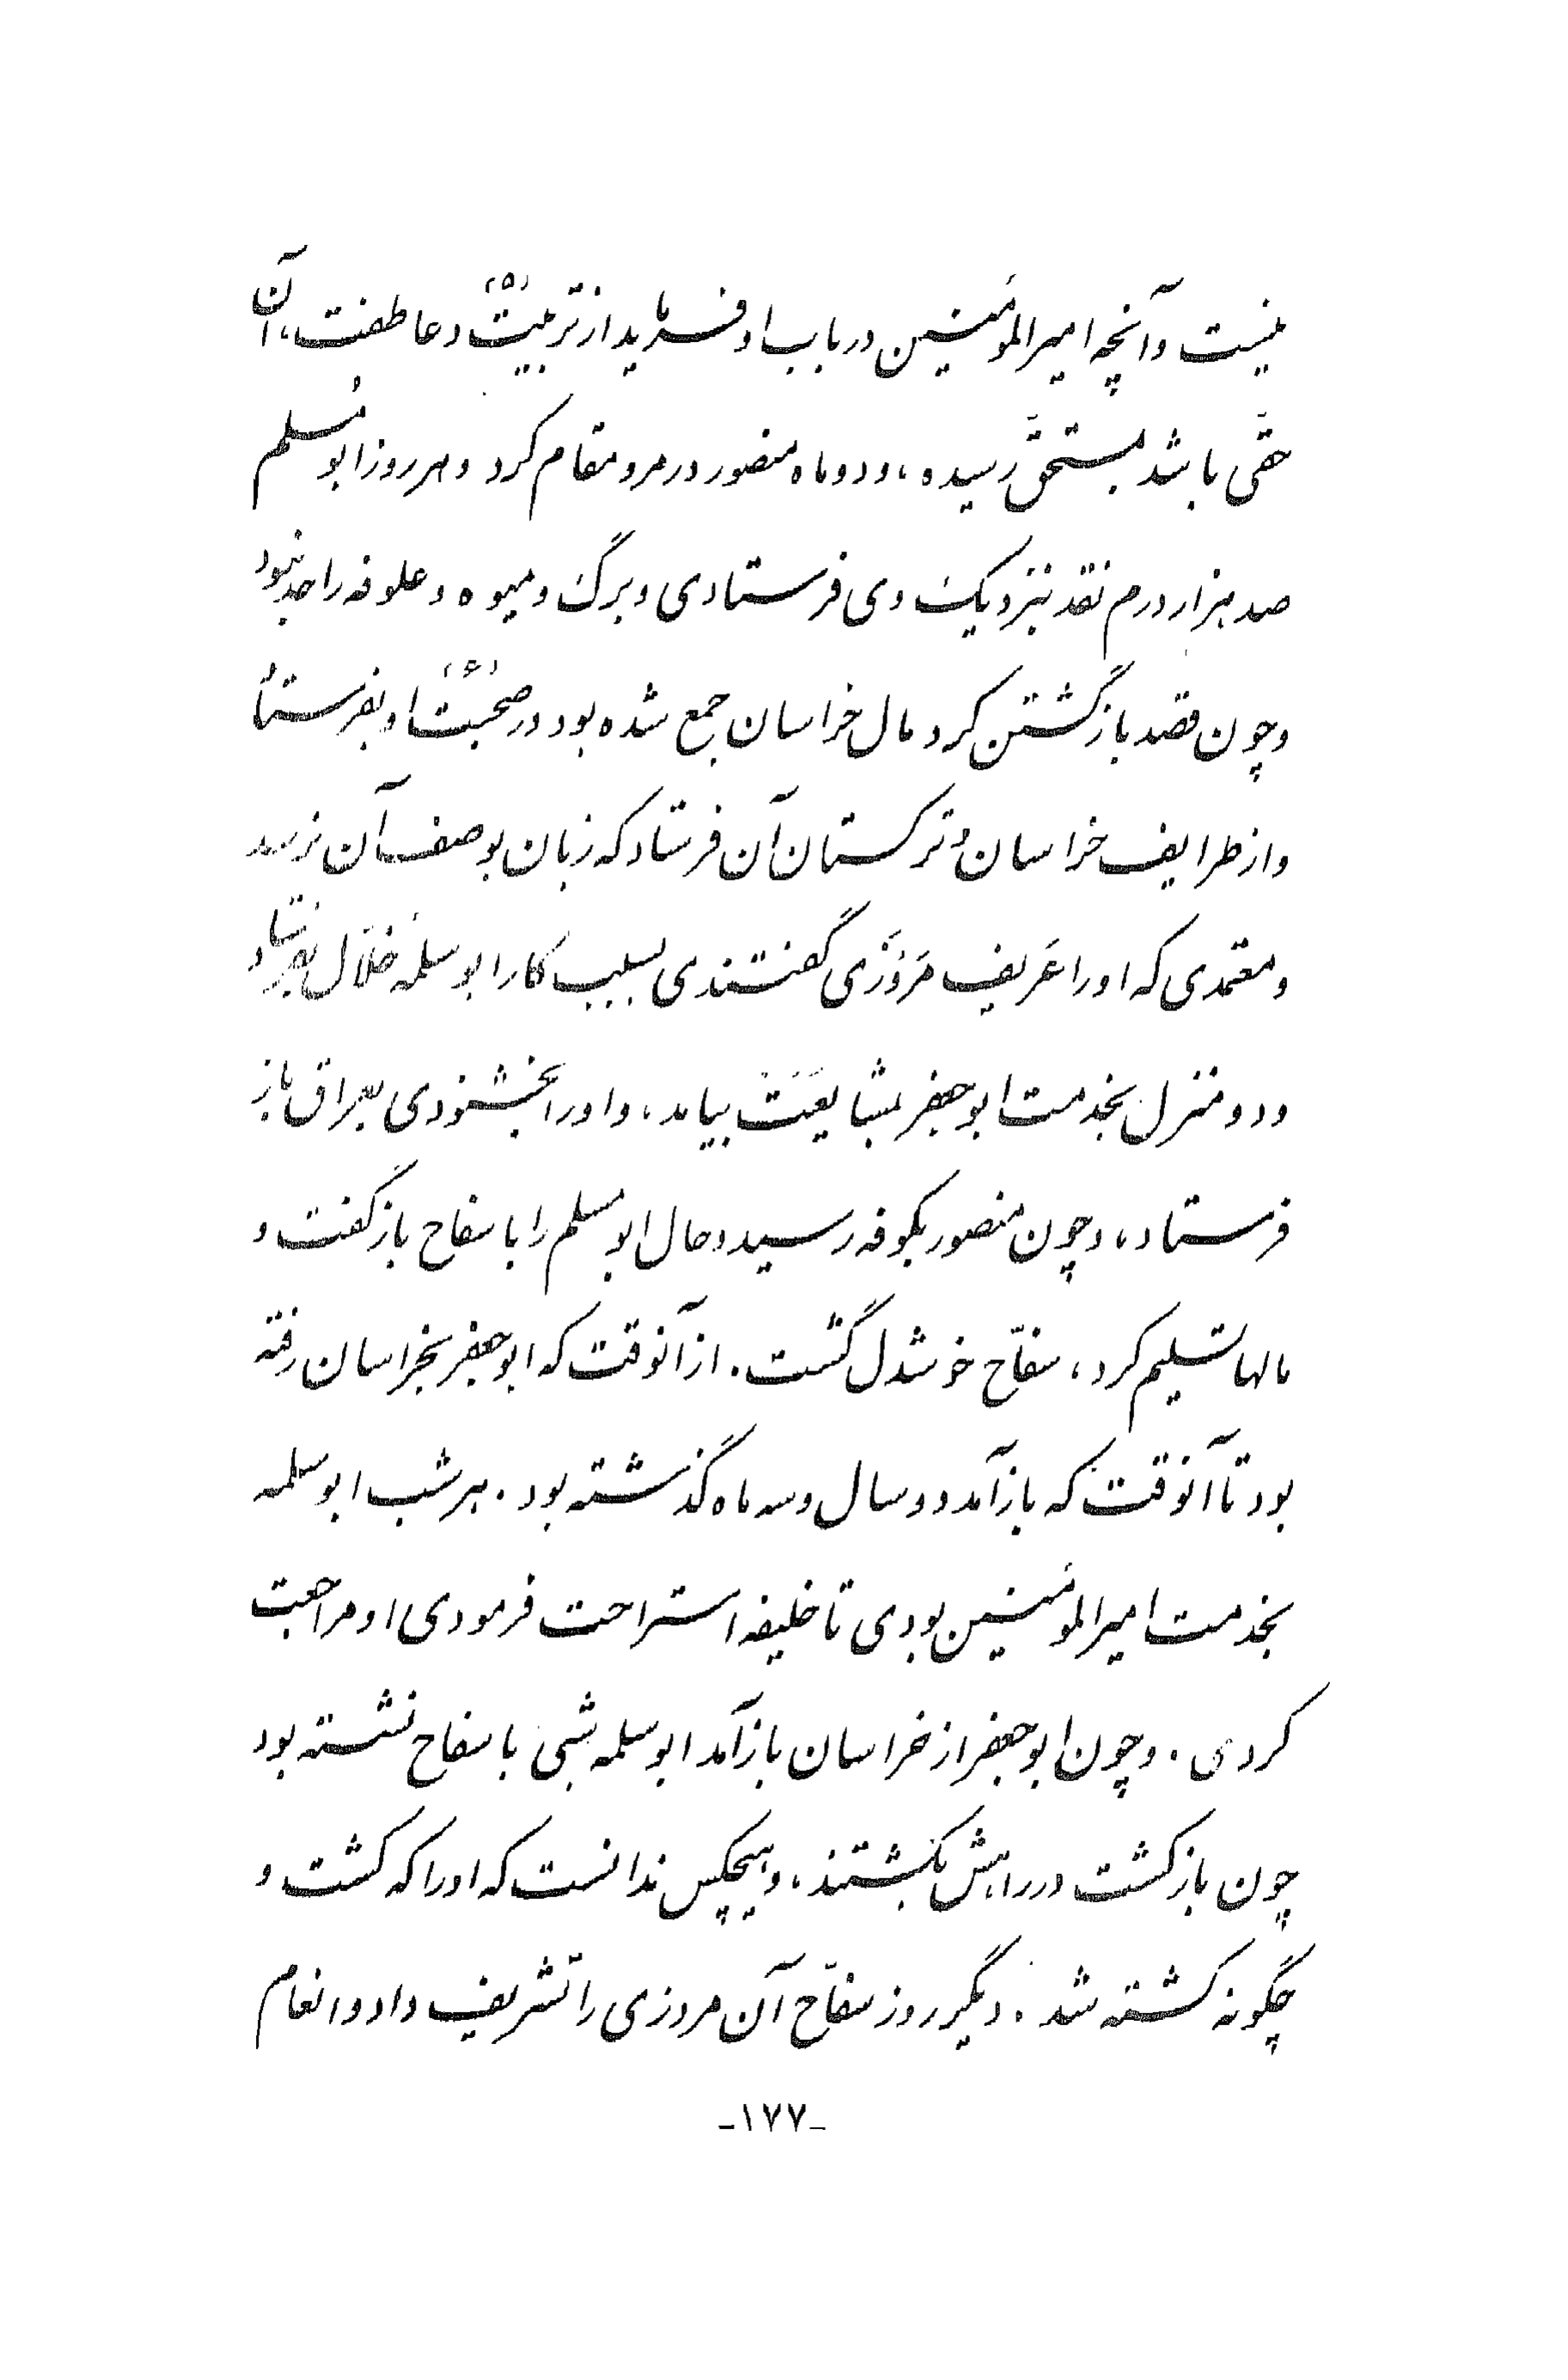 نیست و آنچه امیرالمؤمنین در باب او فرماید از تربیت(۵) و عاطفت، آن
حقّی باشد بمستحقّ رسیده، و دو ماه منصور در مرو مقام کرد و هر روز ابومُسلم
صد هزار درم نقد بنزدیک وی فرستادی و برگ و میوه و علوفه را حد نبود
و چون قصد بازگشتن کرد مال خراسان جمع شده بود در صحبت(۶) او بفرستاد
و از ظرایف خراسان و ترکستان آن فرستاد که زبان بوصف آن نرسد
و معتمدی که او را عَریف مَروَزی گفتندی بسبب کار ابوسلمه خلّال بفرستاد
و دو منزل بخدمت ابوجعفر بمشایعَت بیامد، و او را بخشنودی بعراق باز
فرستاد، و چون منصور بکوفه رسید و حال ابومسلم را با سفاح بازگفت و
مالها تسلیم کرد، سفّاح خوشدل گشت. از آنوقت که ابوجعفر بخراسان رفته
بود تا آنوقت که بازآمد دو سال و سه ماه گذشته بود. هر شب ابوسلمه
بخدمت امیرالمؤمنین بودی تا خلیفه استراحت فرمودی او مراجعت
کردی. و چون ابوجعفر از خراسان بازآمد ابوسلمه شبی با سفاح نشسته بود
چون بازگشت در راهش بکشتند، و هیچکس ندانست که او را که کشت و
چگونه کشته شد. دیگر روز سفّاح آن مروزی را تشریف داد و انعام
-۱۷۷-